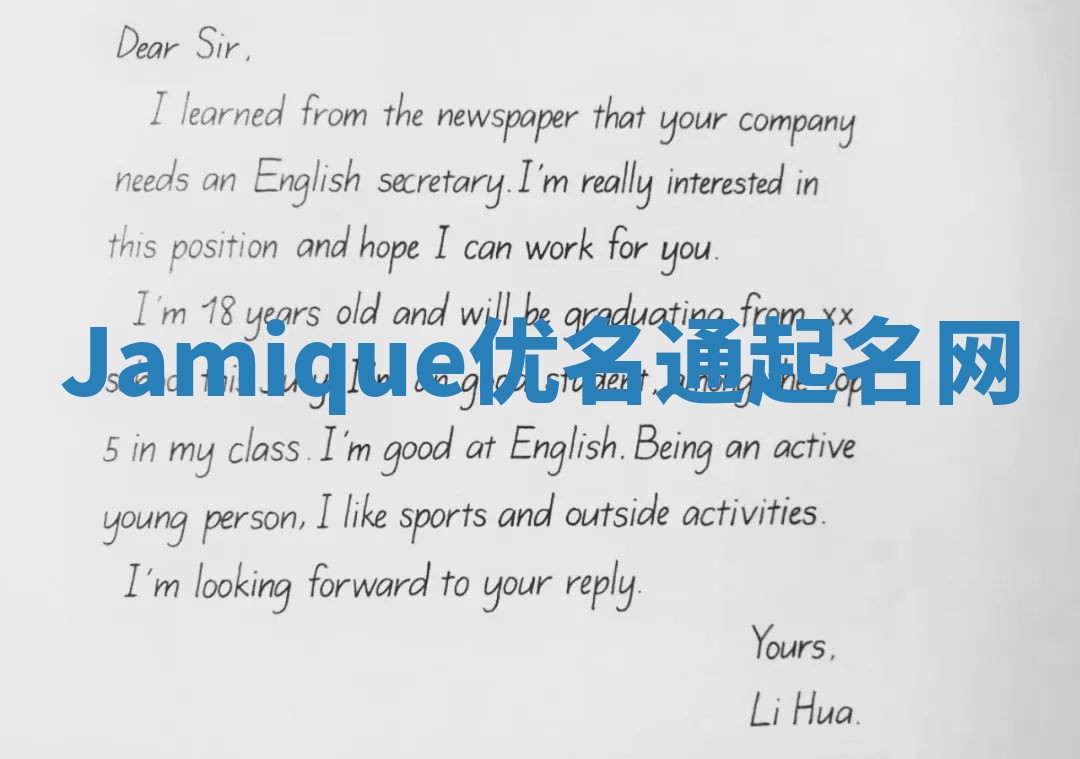 Dear Sir,
I learned from the newspaper that your company
needs an English secretary. I'm really interested in
this position and hope I can work for you.
I'm 18 years old and will be graduating from xx
Jamique优名通起名网
this July. I'm an good student, among the top
5 in my class. I'm good at English. Being an active
young person, I like sports and outside activities.
I'm looking forward to your reply.
Yours,
Li Hua.